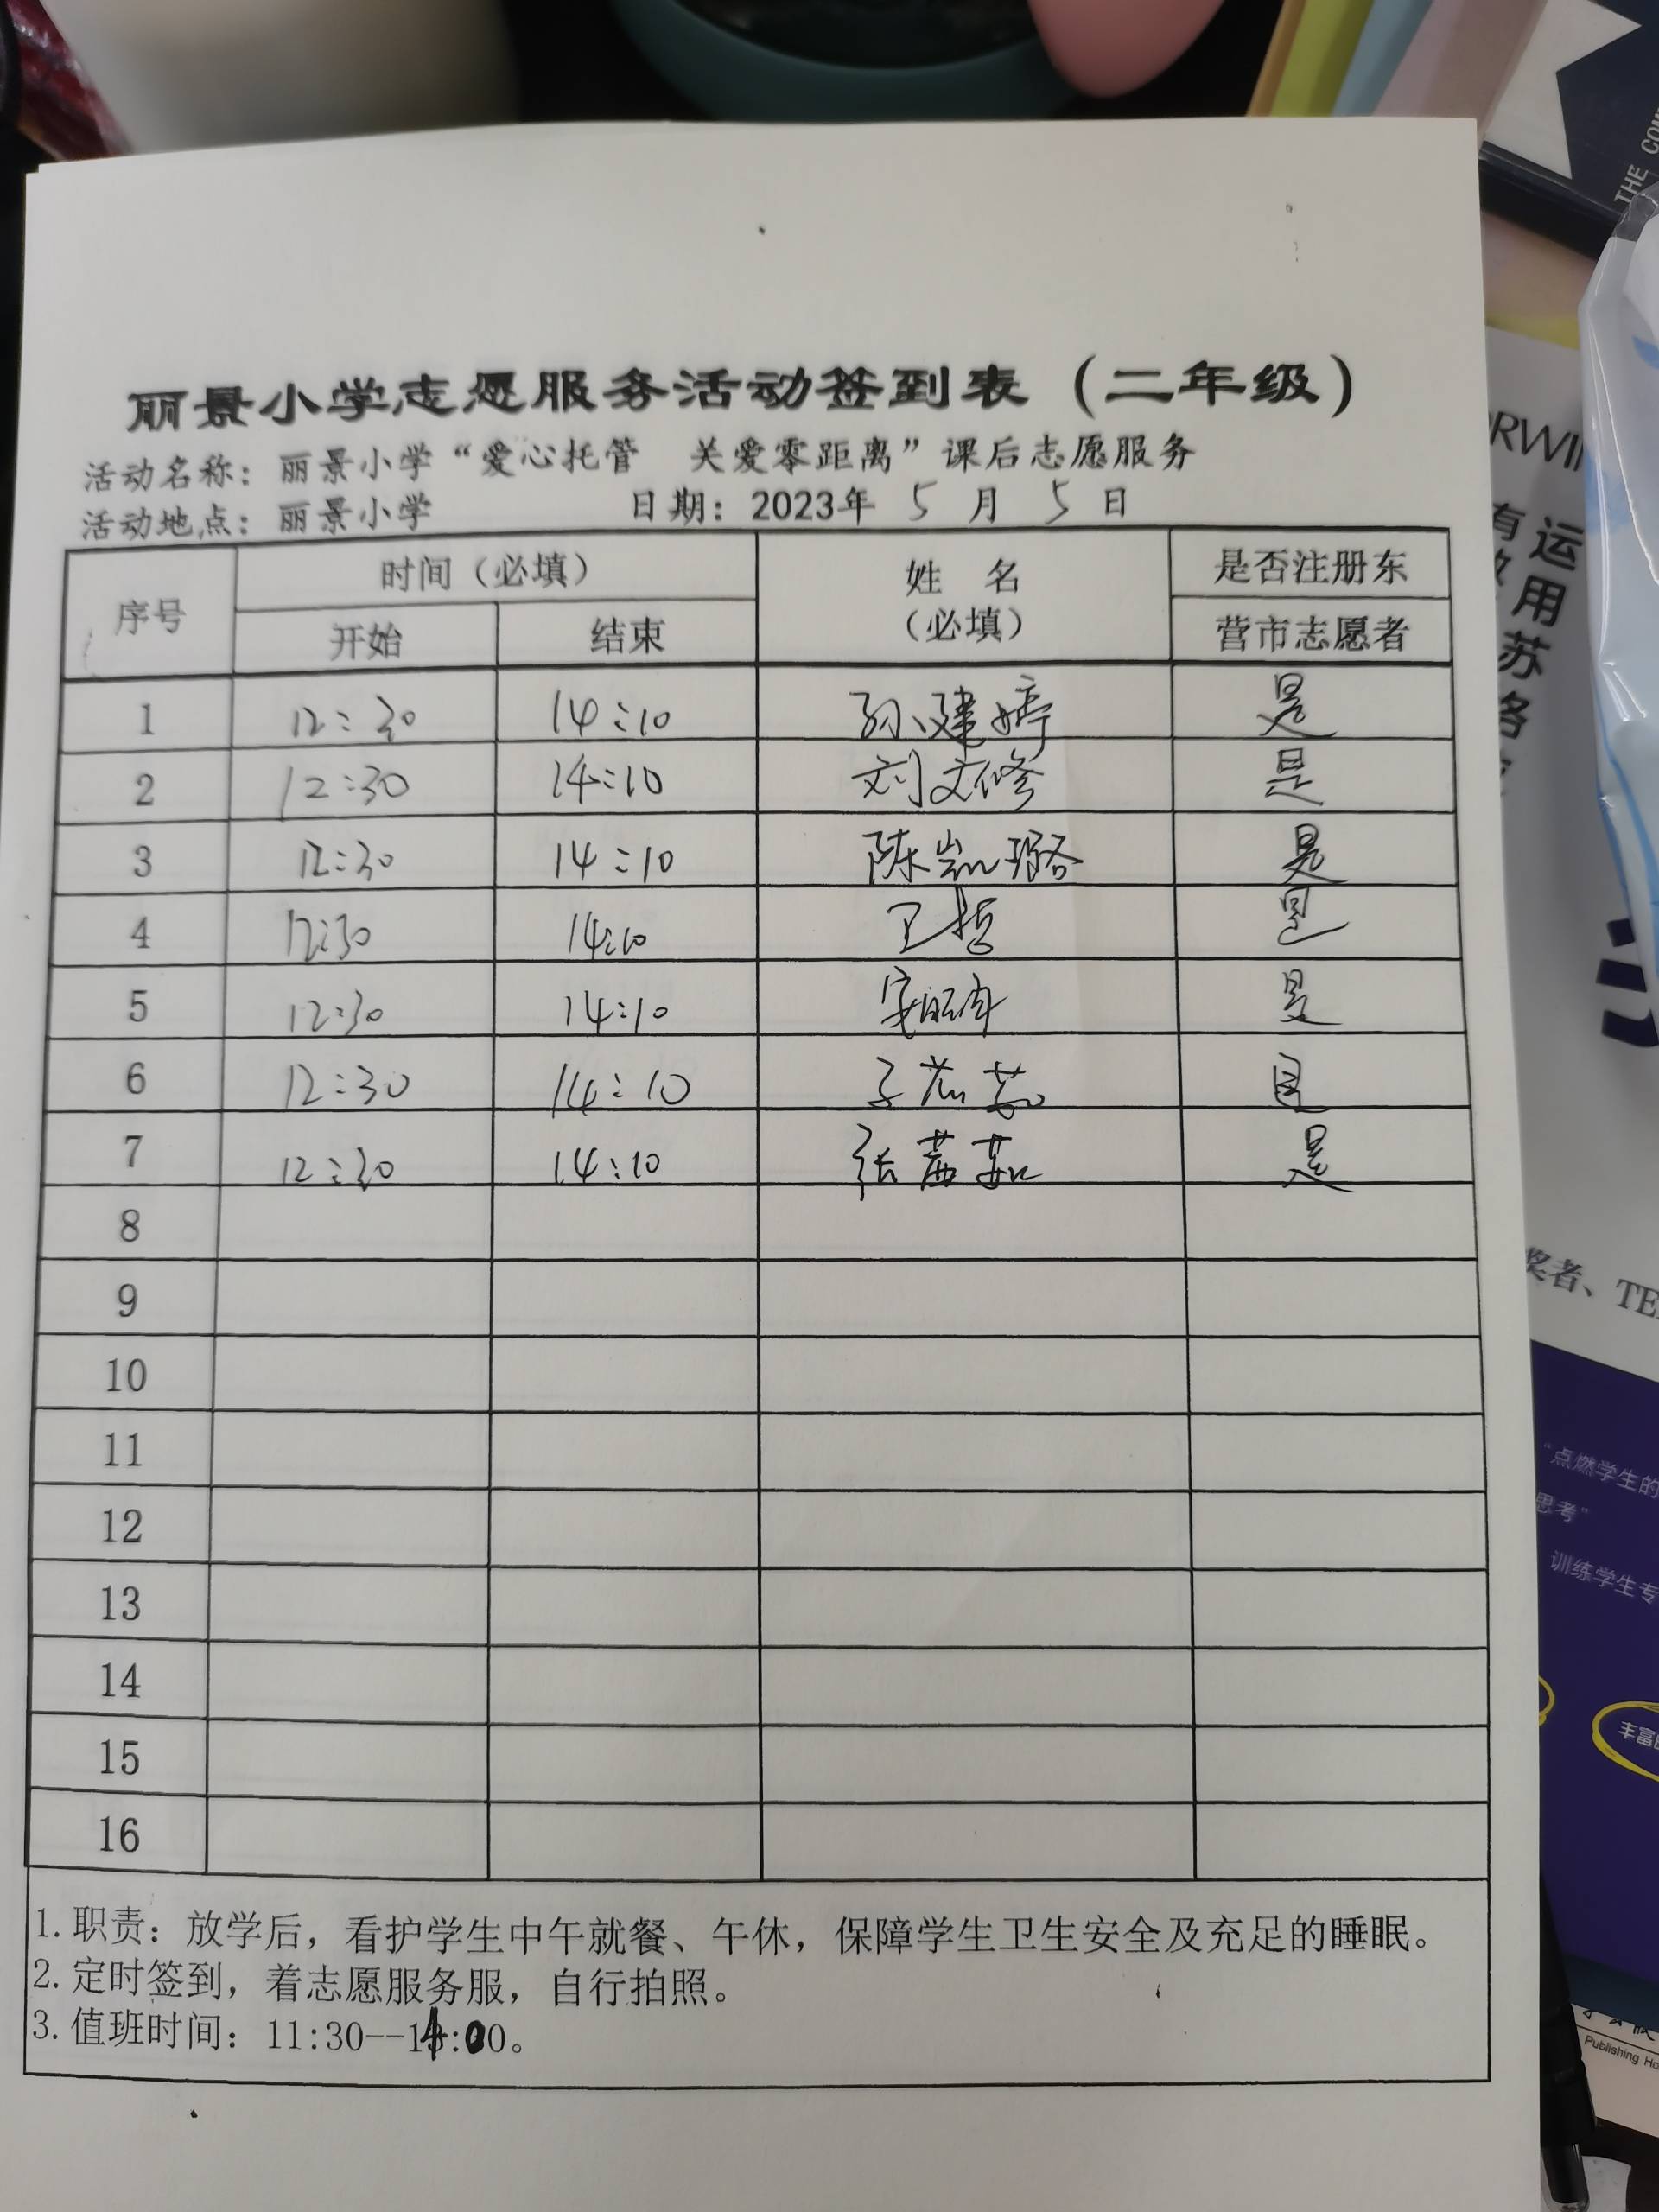 丽景小学志愿服务活动签到表（二年级）
活动名称：丽景小学“爱心托管 关爱零距离”课后志愿服务
活动地点：丽景小学 日期：2023年 5 月 5 日
序号 时间（必填） 姓 名（必填） 是否注册东营市志愿者
开始 结束
1 12:30 14:10 孙建婷 是
2 12:30 14:10 刘文修 是
3 12:30 14:10 陈凯璐 是
4 12:30 14:10 卫哲 是
5 12:30 14:10 是
6 12:30 14:10 是
7 12:30 14:10 张茜茹 是
8
9
10
11
12
13
14
15
16
1.职责：放学后，看护学生中午就餐、午休，保障学生卫生安全及充足的睡眠。
2.定时签到，着志愿服务服，自行拍照。
3.值班时间：11:30--14:00。
THE CO
RWI
运用苏格
奖者、TE
“点燃学生的
思考”
训练学生专
丰富
Publishing Ho